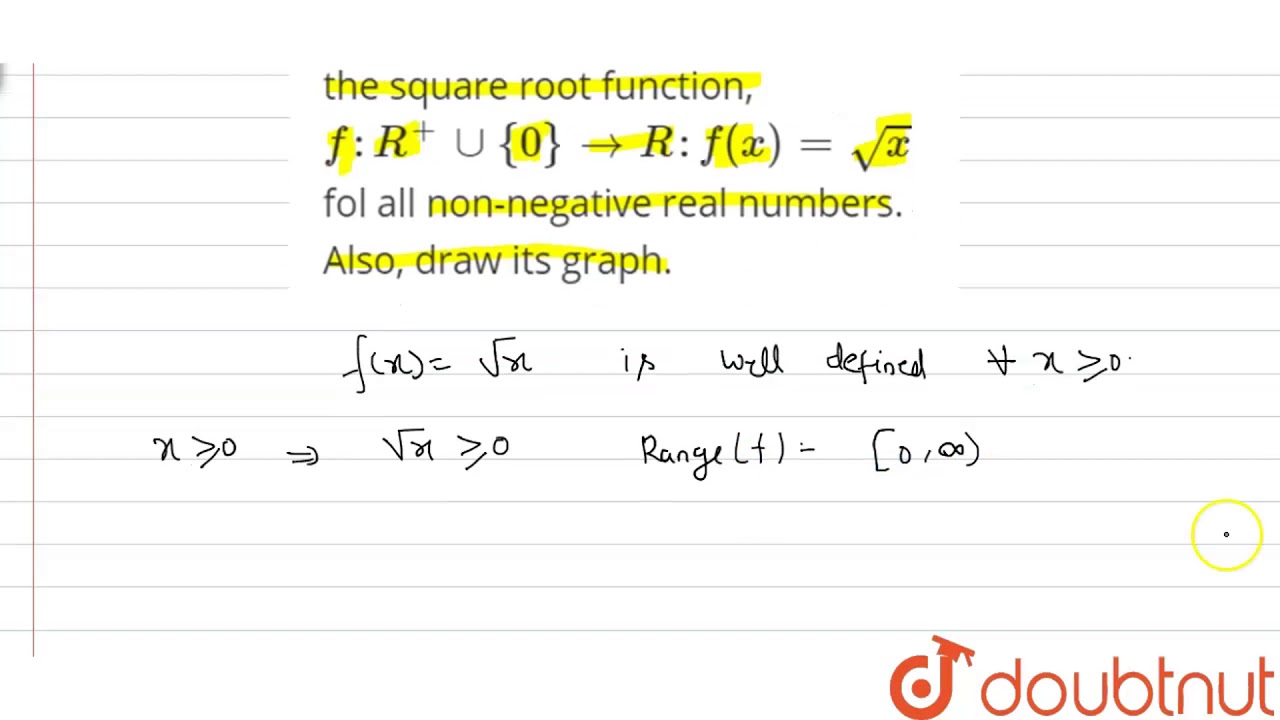 the square root function,
f: R⁺ ∪ {0} → R: f(x) = √x
fol all non-negative real numbers.
Also, draw its graph.
f(x) = √x is well defined ∀ x ≥ 0.
x ≥ 0 ⇒ √x ≥ 0 Range(f) = [0, ∞)
doubtnut